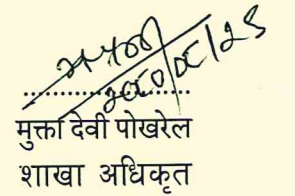 २०८०/०८/२९
....................
मुक्ता देवी पोखरेल
शाखा अधिकृत